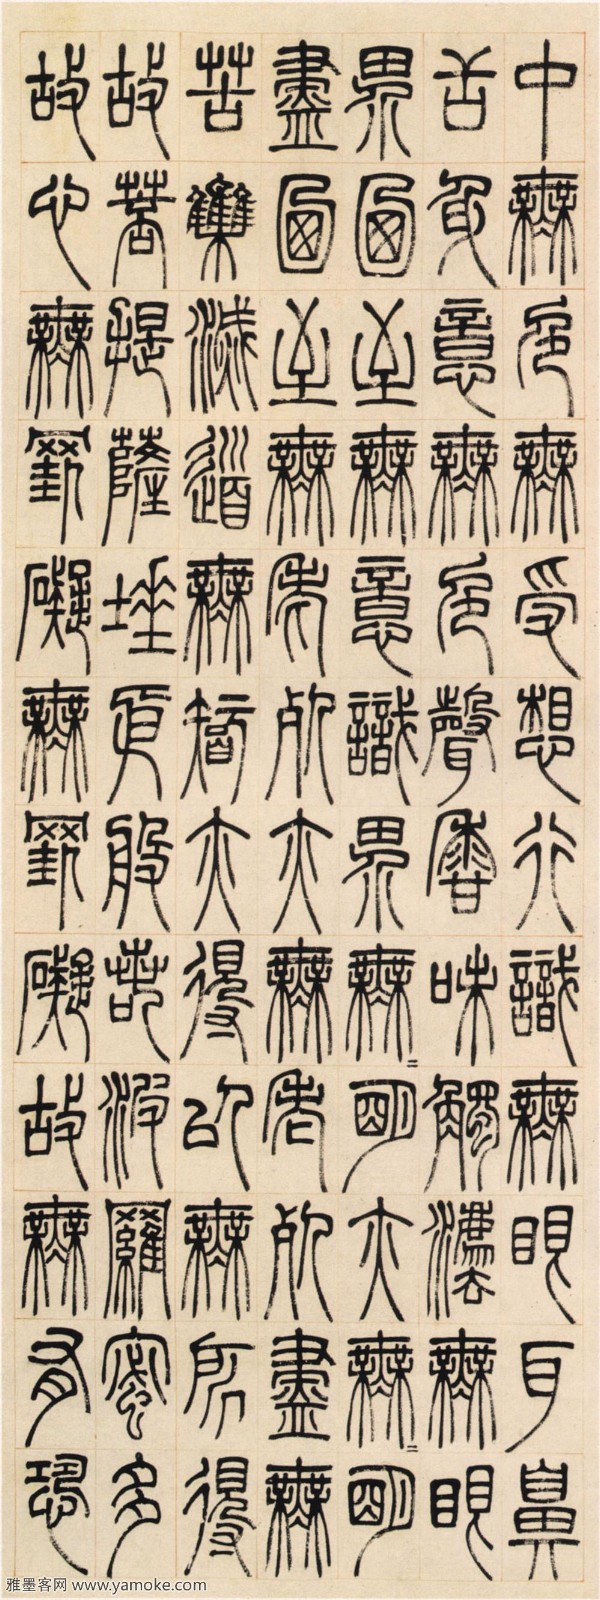 中無色無受想行識無眼耳鼻
舌身意無色聲香味觸法無眼
界迺至無意識界無〻明亦無〻明
盡迺至無老死亦無老死盡無
苦集滅道無智亦得以無所得
故菩提薩埵依般若波羅蜜多
故心無罣礙無罣礙故無有恐
雅墨客网 www.yamoke.com